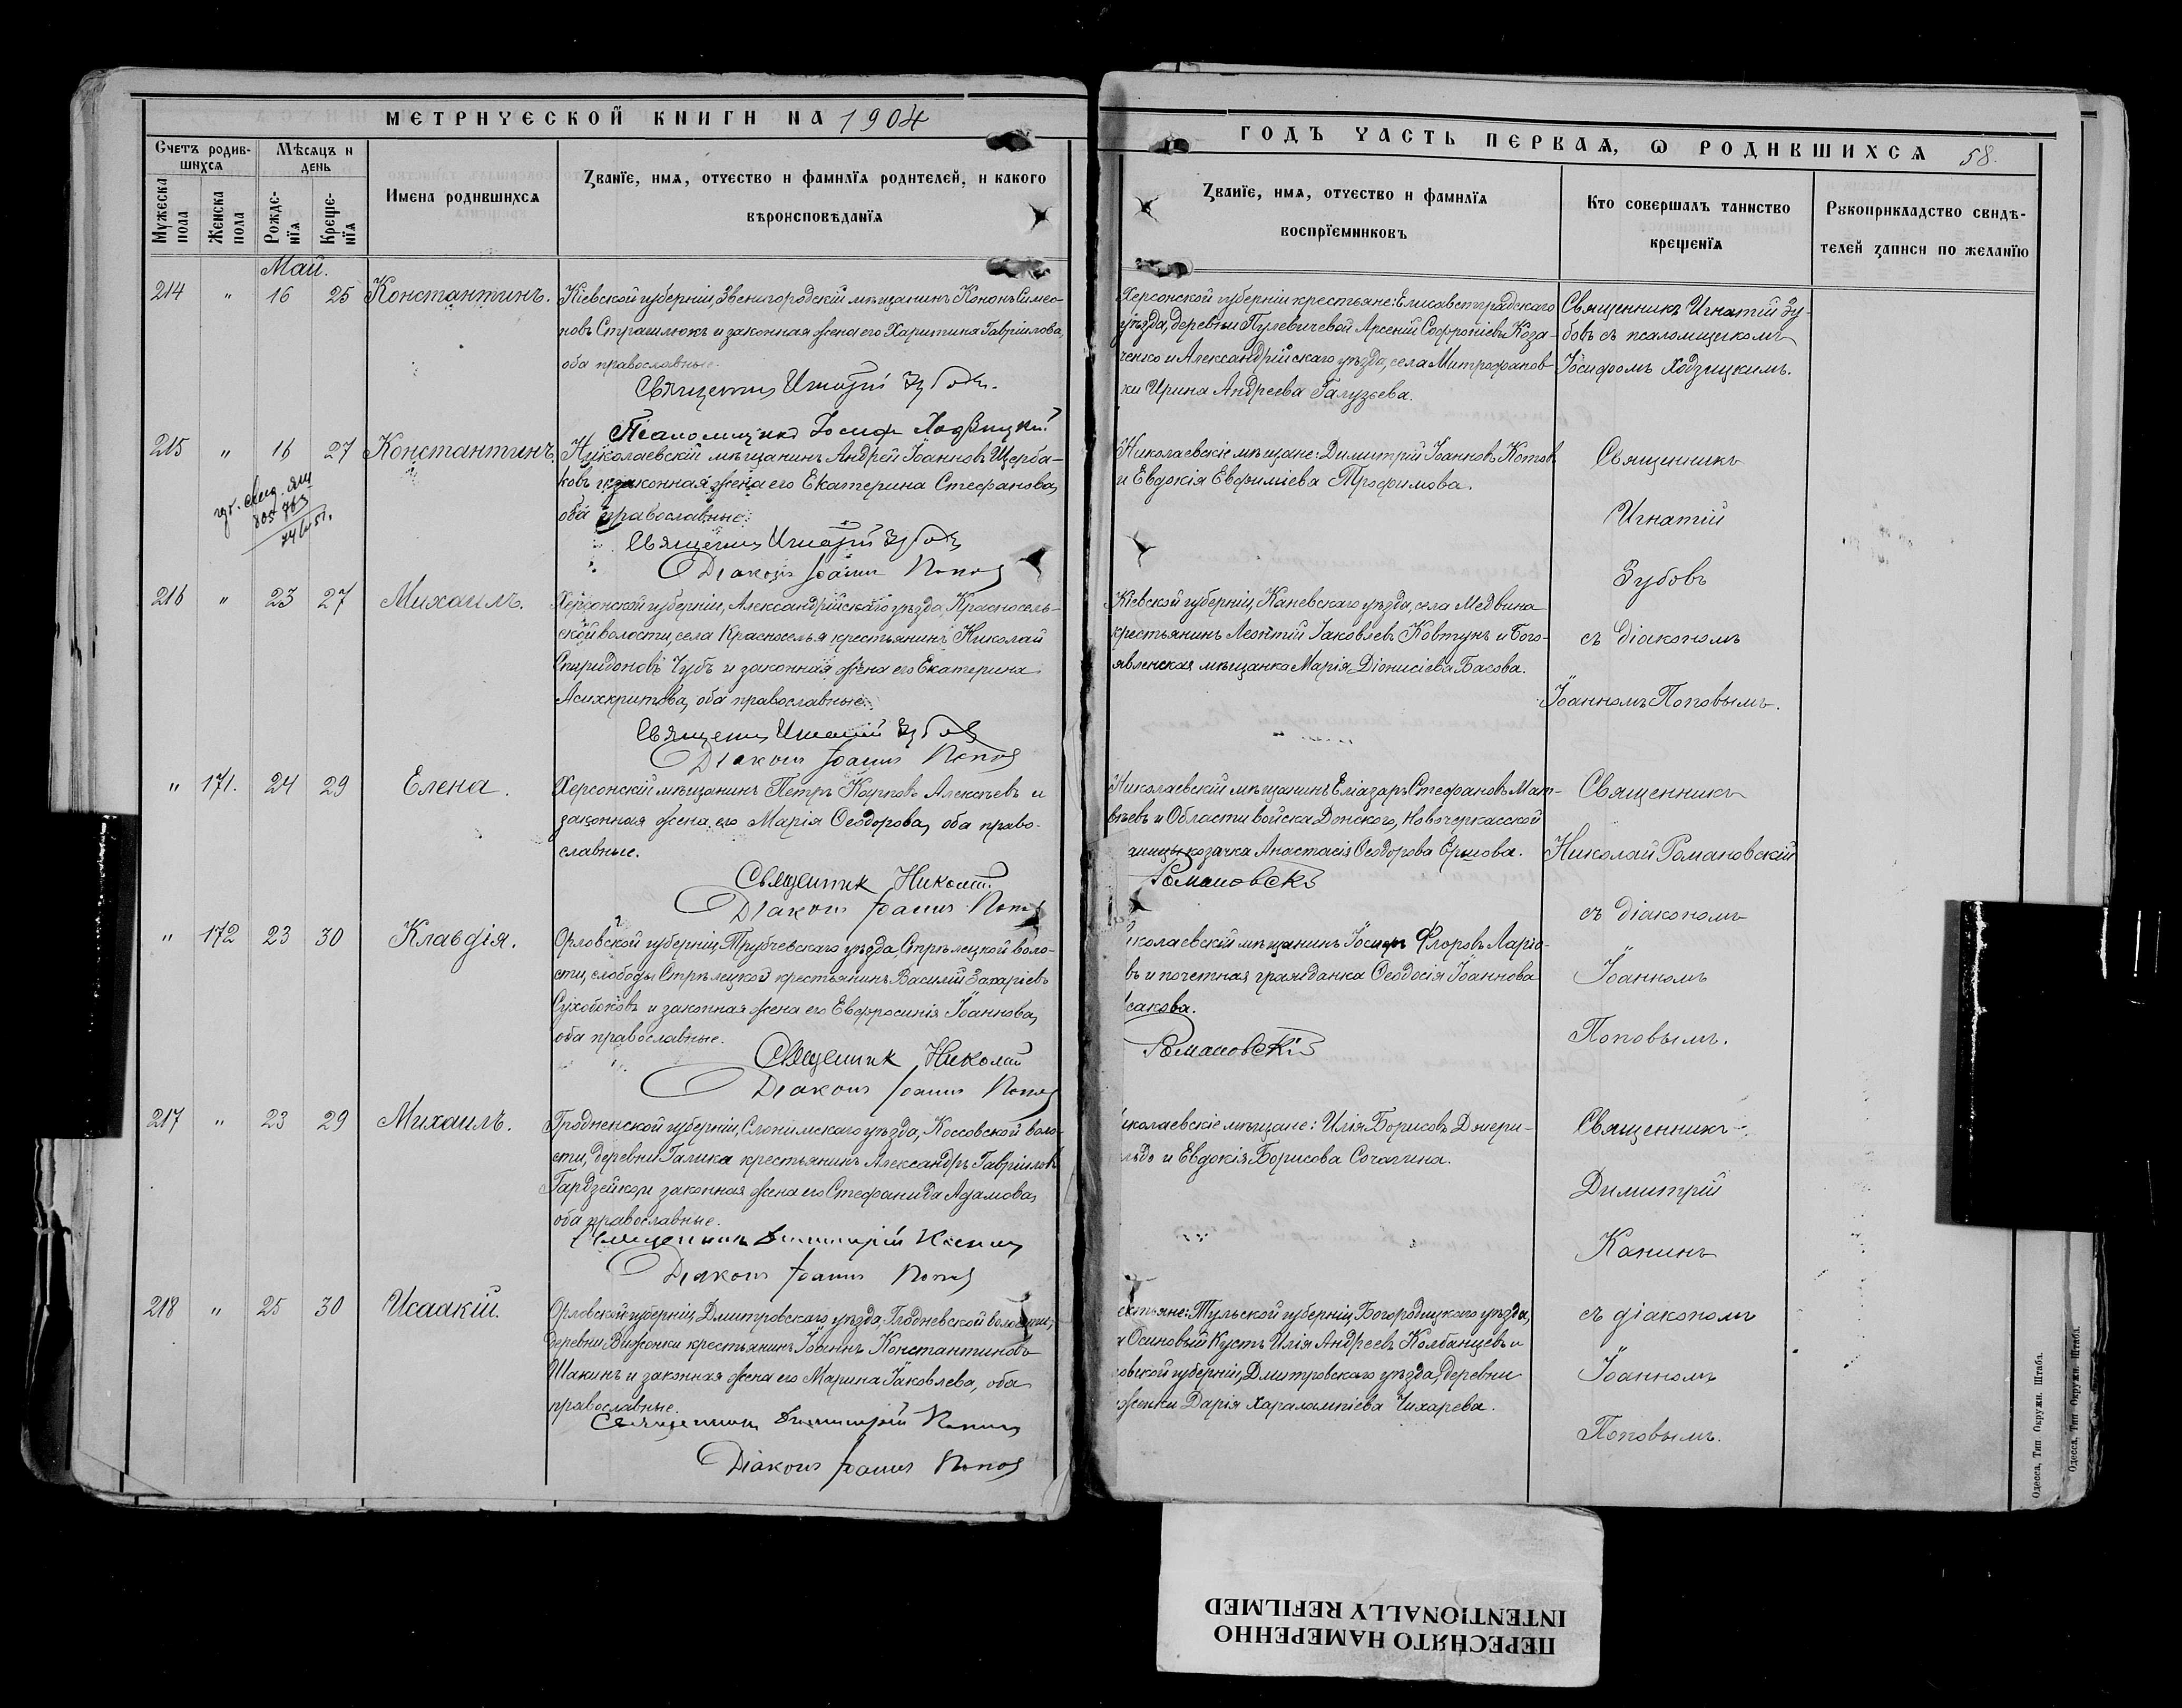 МЕТРИЧЕСКОЙ КНИГИ НА 1904
Счетъ родив-
шихся
Мѣсяцъ и
день
Мужеска
пола
Женска
пола
Рожде-
нїя
Креще-
нїя
Имена родившихся
Званїе, имя, отчество и фамилїя родителей, и какого
вѣроисповѣданїя
Май.
214 " 16 25 Константинъ.
Кіевской губерніи, Звенигородскій мѣщанинъ Кононъ Симео-
новъ Страшлюкъ и законная жена его Харитина Гавріилова,
оба православные.
Священникъ Игнатій Зубовъ.
Псаломщикъ Іосифъ Ходзицкій
215 " 16 27 Константинъ.
Николаевскій мѣщанинъ Андрей Іоанновъ Щерба-
ковъ и законная жена его Екатерина Стефанова,
оба православные.
Священникъ Игнатій Зубовъ
Діаконъ Іоаннъ Поповъ
216 " 23 27 Михаилъ.
Херсонской губерніи, Александрійскаго уѣзда, Красносель-
ской волости, села Красноселья крестьянинъ Николай
Спиридоновъ Чубъ и законная жена его Екатерина
Асинкритова, оба православные.
Священникъ Игнатій Зубовъ
Діаконъ Іоаннъ Поповъ
" 171. 24 29 Елена.
Херсонскій мѣщанинъ Петръ Карповъ Алексѣевъ и
законная жена его Марія Ѳеодорова, оба право-
славные.
Священник Николай
Діаконъ Іоаннъ Поповъ
" 172 23 30 Клавдія.
Орловской губерніи, Трубчевскаго уѣзда, Стрѣлецкой воло-
сти, слободы Стрѣлецкой крестьянинъ Василій Захаріевъ
Сухобоковъ и законная жена его Евфросинія Іоаннова,
оба православные.
Священник Николай
Діаконъ Іоаннъ Поповъ
217 " 23 29 Михаилъ.
Гродненской губерніи, Слонимскаго уѣзда, Коссовской воло-
сти, деревни Галика крестьянинъ Александръ Гавріиловъ
Гардзейко и законная жена его Стефанида Адамова,
оба православные.
Священникъ Димитрій Канинъ
Діаконъ Іоаннъ Поповъ
218 " 25 30 Исаакій.
Орловской губерніи, Дмитровскаго уѣзда, Гноднeвской волости,
деревни Вижонки крестьянинъ Іоаннъ Константиновъ
Шакинъ и законная жена его Марина Іаковлева, оба
православные.
Священникъ Димитрій Канинъ
Діаконъ Іоаннъ Поповъ
ГОДЪ ЧАСТЬ ПЕРВАЯ, Ѡ РОДИВШИХСЯ 58.
Званїе, имя, отчество и фамилїя
воспрїемниковъ
Кто совершалъ таинство
крещенїя
Рукоприкладство свидѣ-
телей записи по желанїю
Херсонской губерніи крестьяне: Елисаветградскаго
уѣзда, деревни Пулевичевой Арсеній Софроніевъ Коза-
ченко и Александрійскаго уѣзда, села Митрофанов-
ки Ирина Андреева Галузеева.
Священникъ Игнатій Зу-
бовъ съ псаломщикомъ
Іосифомъ Ходзицкимъ.
Николаевскіе мѣщане: Димитрій Іоанновъ Котовъ
и Евдокія Евфиміева Трофимова.
Священникъ
Игнатій
Зубовъ
съ діакономъ
Іоанномъ Поповымъ.
Кіевской губерніи, Каневскаго уѣзда, села Медвина
крестьянинъ Леонтій Іаковлевъ Ковтунъ и Бого-
явленская мѣщанка Марія Діонисіева Басова.
Николаевскій мѣщанинъ Еліазаръ Стефановъ Мат-
вѣевъ и Области войска Донского, Новочеркасской
аницы козачка Анастасія Ѳеодорова Ершова.
Романовскій
Священникъ
Николай Романовскій
съ діакономъ
Іоанномъ
Поповымъ.
иколаевскій мѣщанинъ Іосифъ Флоровъ Ларіо-
въ и почетная гражданка Ѳеодосія Іоаннова
сакова.
Романовскій
иколаевскіе мѣщане: Илія Борисовъ Джери-
льдо и Евдокія Борисова Сочагина.
Священникъ
Димитрій
Канинъ
съ діакономъ
Іоанномъ
Поповымъ.
естьяне: Тульской губерніи, Богородицкаго уѣзда,
а Осиновый Кустъ Илія Андреевъ Колбанцевъ и
овской губерніи, Дмитровскаго уѣзда, деревни
женки Дарія Харалампіева Чихарева.
Одесса, Тип. Окружн. Штаба.
Одесса, Тип. Окружн. Штаба.
ПЕРЕСНЯТО НАМЕРЕННО
INTENTIONALLY REFILMED